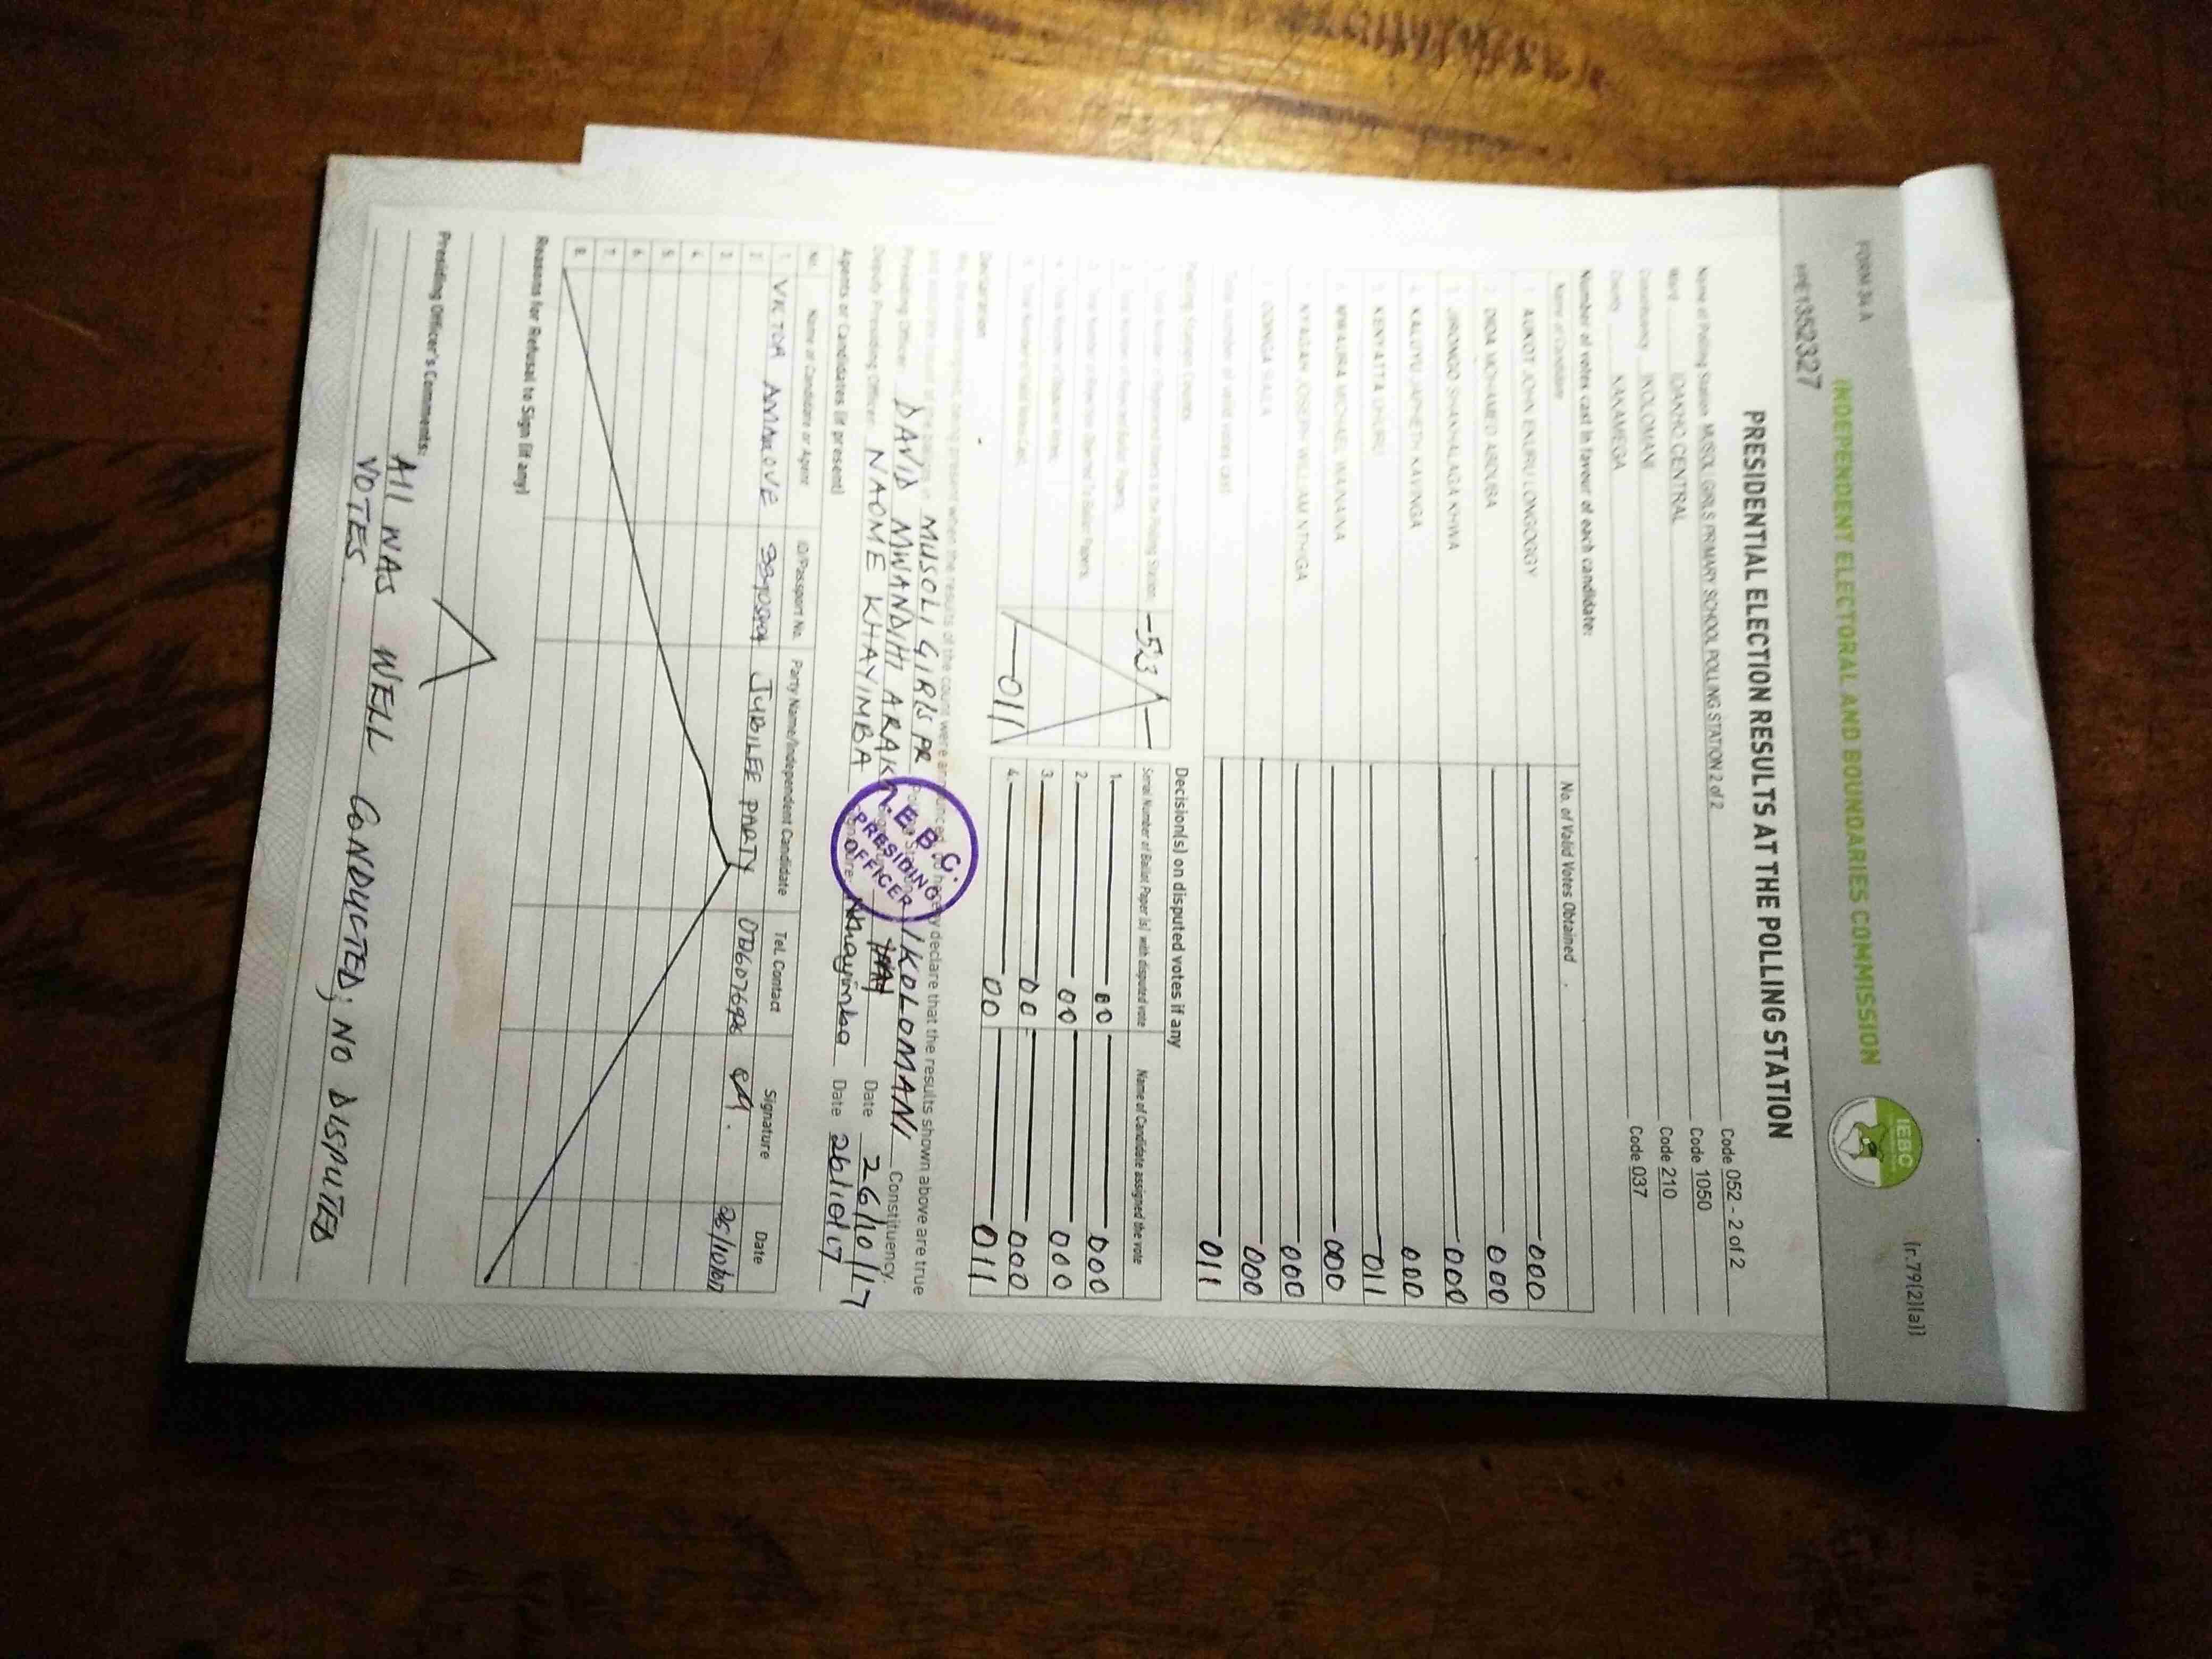 FORM 34 A
(r.79(2)(a))
INDEPENDENT ELECTORAL AND BOUNDARIES COMMISSION
IEBC
1352327
PRESIDENTIAL ELECTION RESULTS AT THE POLLING STATION
Name of Polling Station MUSOLI GIRLS PRIMARY SCHOOL POLLING STATION 2 of 2 Code 052 - 2 of 2
Ward IDAKHO CENTRAL Code 1050
Constituency IKOLOMANI Code 210
County KAKAMEGA Code 037
Number of votes cast in favour of each candidate:
Name of Candidate No. of Valid Votes Obtained
1. AUKOT JOHN EKURU LONGOGGY 000
2. DIDA MOHAMED ABDUBA 000
3. JIRONGO SHAKHALAGA KHWA 000
4. KALUYU JAPHETH KAVINGA 000
5. KENYATTA UHURU 011
6. MWAURA MICHAEL WAINAINA 000
7. NYAGAH JOSEPH WILLIAM NTHIGA 000
8. ODINGA RAILA 000
Total number of valid votes cast 011
Polling Station Counts
1. Total Number of Registered Voters in the Polling Station 523
2. Total Number of Rejected Ballot Papers
3. Total Number of Rejection Objected To Ballot Papers
4. Total Number of Disputed Votes
5. Total Number of Valid Votes Cast 011
Decision(s) on disputed votes if any
Serial Number of Ballot Paper (s) with disputed vote Name of Candidate assigned the vote
1. 00 000
2. 00 000
3. 00 000
4. 00 011
Declaration
being present when the results of the count were announced, do hereby declare that the results shown above are true
MUSOLI GIRLS PR IKOLOMANI Constituency.
Presiding Officer DAVID MWANDIHI Date 26/10/17
Deputy Presiding Officer NAOME KHAYIMBA Khayimba Date 26/10/17
I.E.B.C.
PRESIDING
OFFICER
Agents or Candidates (if present)
No. Name of Candidate or Agent ID/Passport No. Party Name/Independent Candidate Tel. Contact Signature Date
1. VICTOR JUBILEE PARTY
2.
3.
4.
5.
6.
7.
8.
Reasons for Refusal to Sign (if any)
Presiding Officer's Comments:
All WAS WELL CONDUCTED; NO DISPUTED
VOTES.